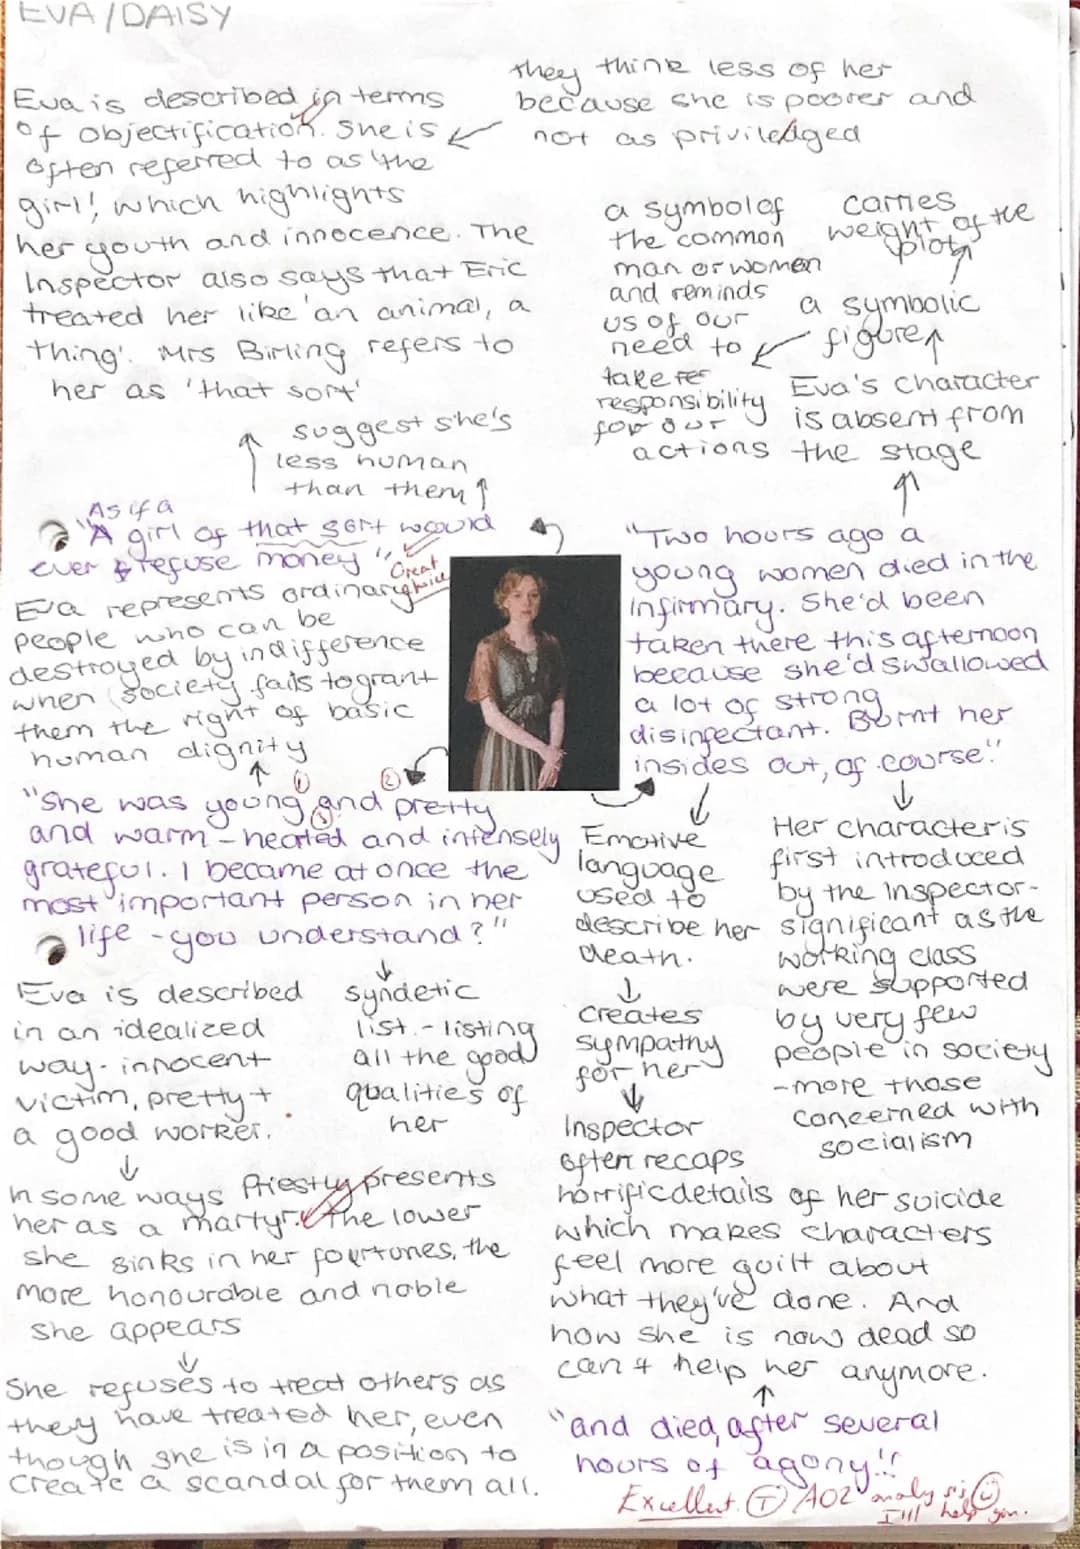 EVA/DAISY
they think less of her
because she is poorer and
not as priviledged
Eva is described in terms
of objectification. She is
often referred to as 'the
girl', which highlights
her youth and innocence. The
Inspector also says that Eric
treated her like 'an animal, a
thing'. Mrs Birling refers to
her as 'that sort'
suggest she's
less human
than them
a symbol of
the common
man or women
and reminds
us of our
need to
take
responsibility
for our
actions
carries
weight of the
plot
a symbolic
figure
Eva's character
is absent from
the stage
As if a
"A girl of that sort would
ever refuse money"
Great
Eva represents ordinary
people who can be
destroyed by indifference
when society fails to grant
them the right of basic
human dignity
"Two hours ago a
young women died in the
infirmary. She'd been
taken there this afternoon
because she'd swallowed
a lot of strong
disinfectant. Burnt her
insides out, of course."
1 2
"She was young and pretty
3
and warm-hearted and intensely
grateful. I became at once the
most important person in her
life - you understand?"
Eva is described
in an idealized
way - innocent
victim, pretty +
a good worker.
syndetic
list - listing
all the good
qualities of
her
In some ways Priestly presents
her as a martyr. The lower
she sinks in her fourtunes, the
more honourable and noble
she appears
She refuses to treat others as
they have treated her, even
though she is in a position to
create a scandal for them all.
Emotive
language
used to
describe her
death.
creates
sympathy
for her
Inspector
often recaps
horrific details of her suicide
which makes characters
feel more guilt about
what they've done. And
how she is now dead so
can't help her anymore.
"and died, after several
hours of agony"
Her character is
first introduced
by the Inspector -
significant as the
working class
were supported
by very few
people in society
- more those
concerned with
socialism
Excellent. T AO2 analysis
I'll help you.